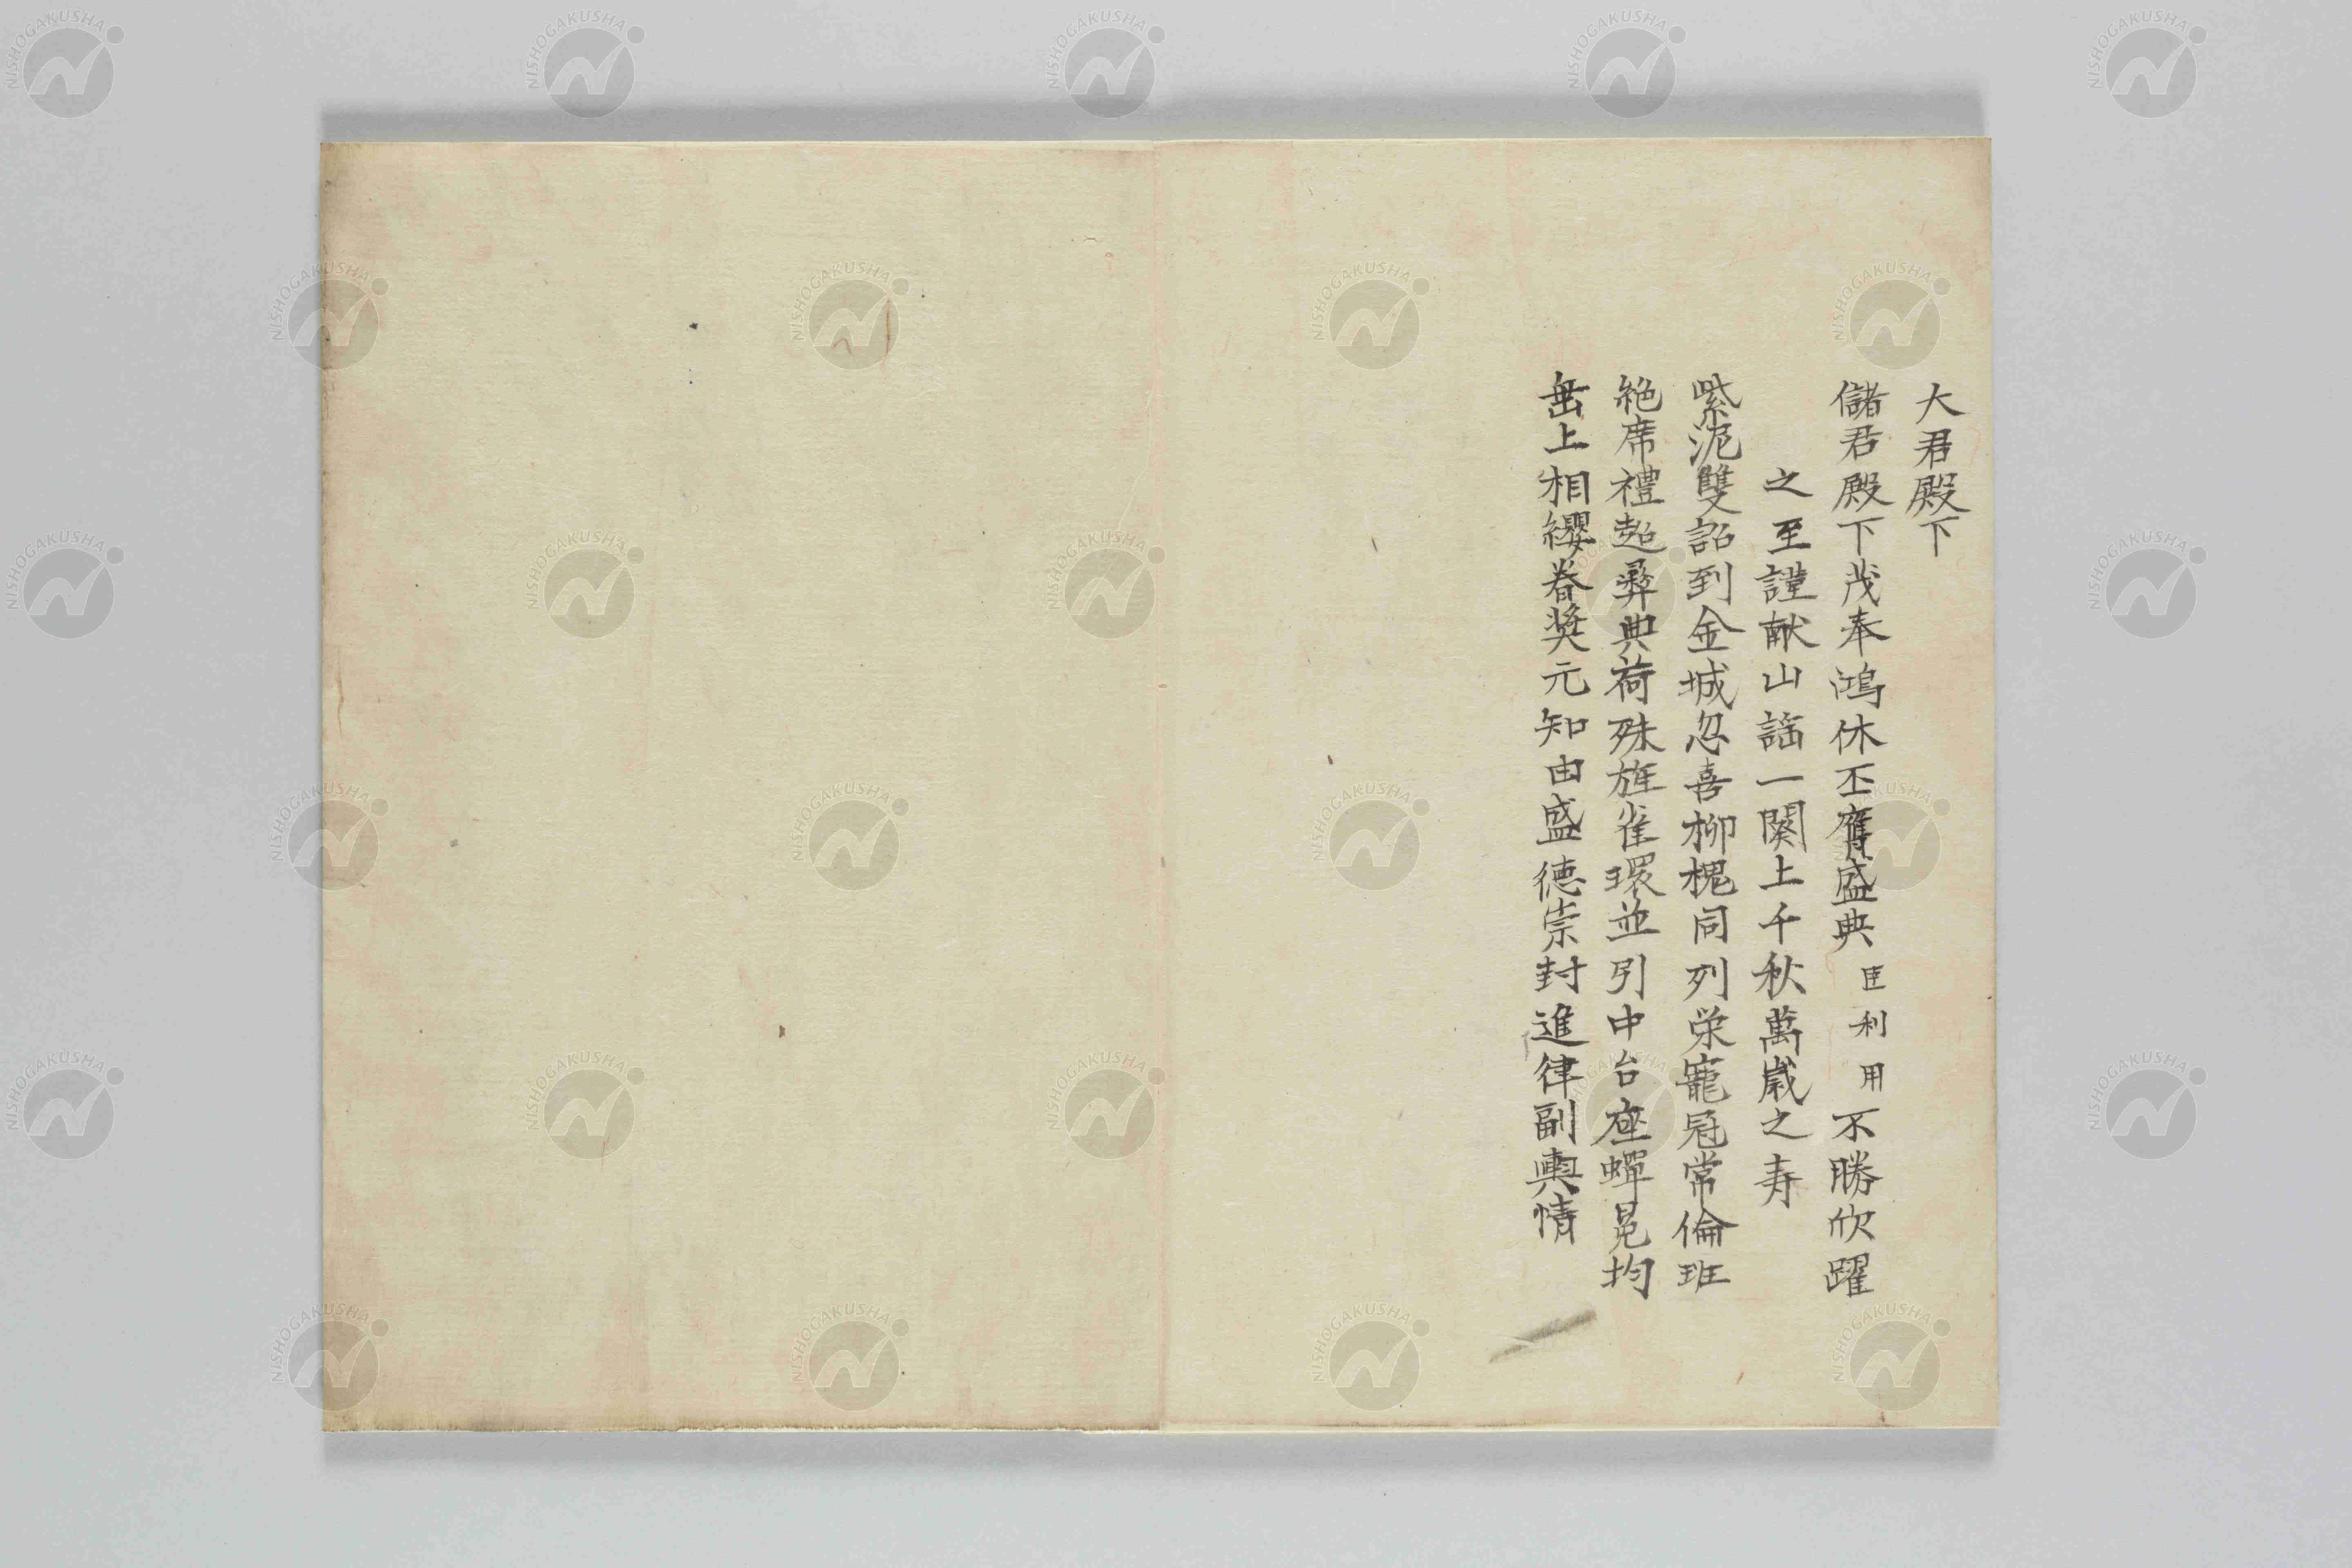 大君殿下
儲君殿下茂奉鴻休丕膺盛典臣利用不勝欣躍
之至謹献山謡一闋上千秋萬歳之寿
紫泥雙詔到金城忽喜柳槐同列栄寵冠常倫班
絶席禮超彛典荷殊旌雀環並引中台座蟬冕均
垂上相纓眷奨元知由盛徳崇封進律副輿情